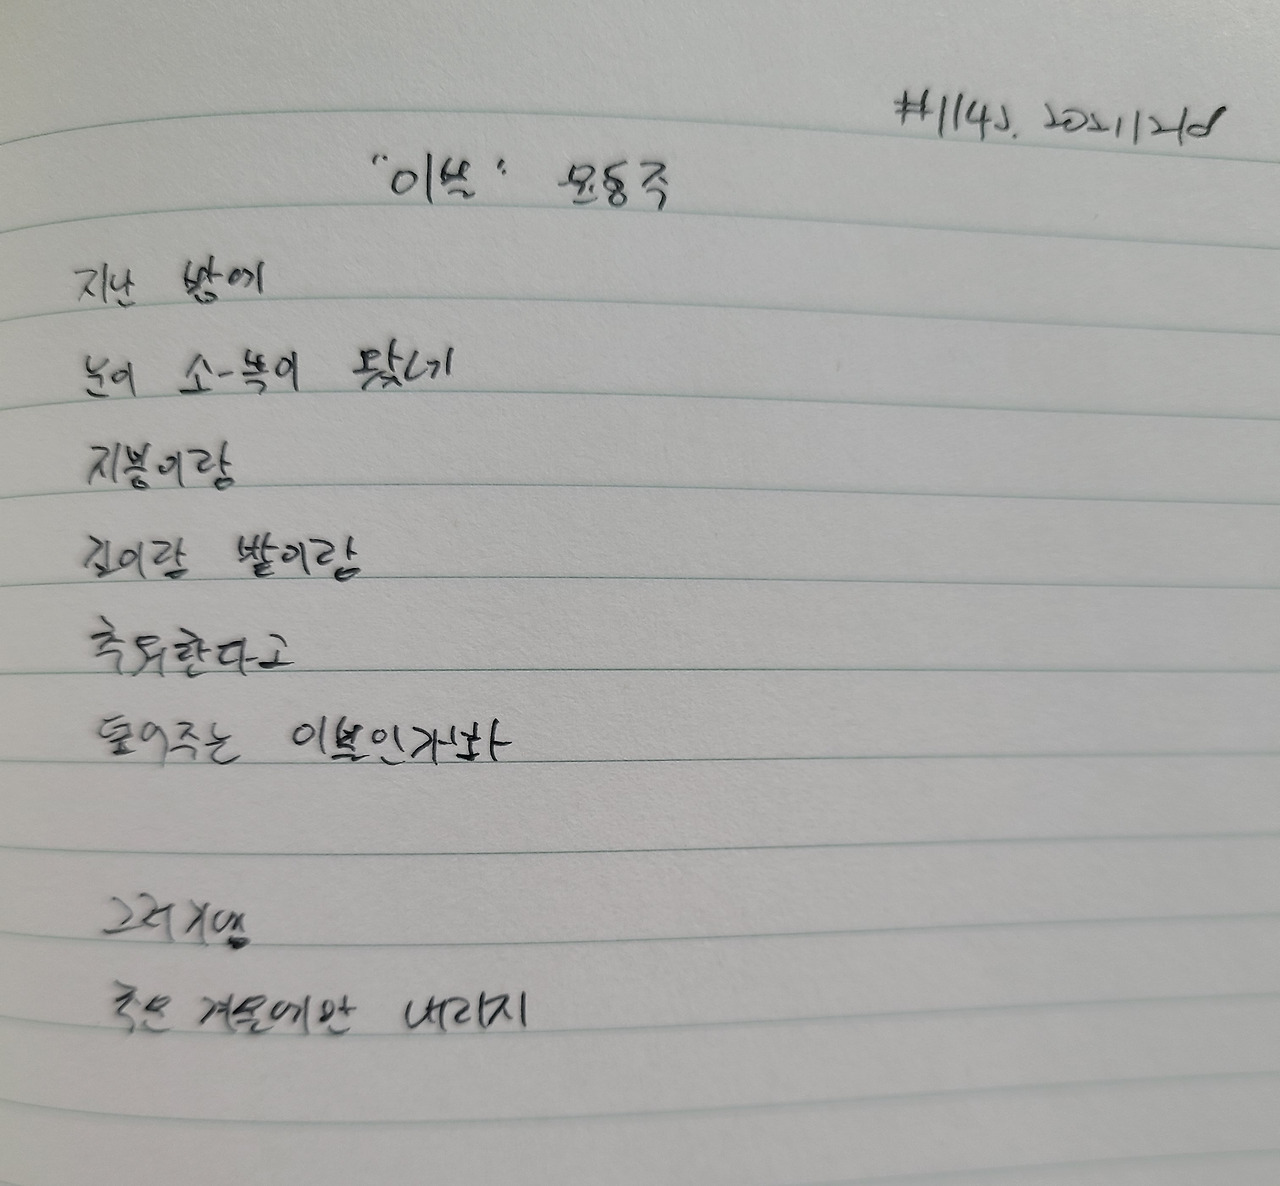 #1145. 20211218
"이불" 윤동주
지난 밤에
눈이 소-복이 왔네
지붕이랑
길이랑 밭이랑
추워한다고
덮어주는 이불인가봐
그러기에
추운 겨울에만 내리지